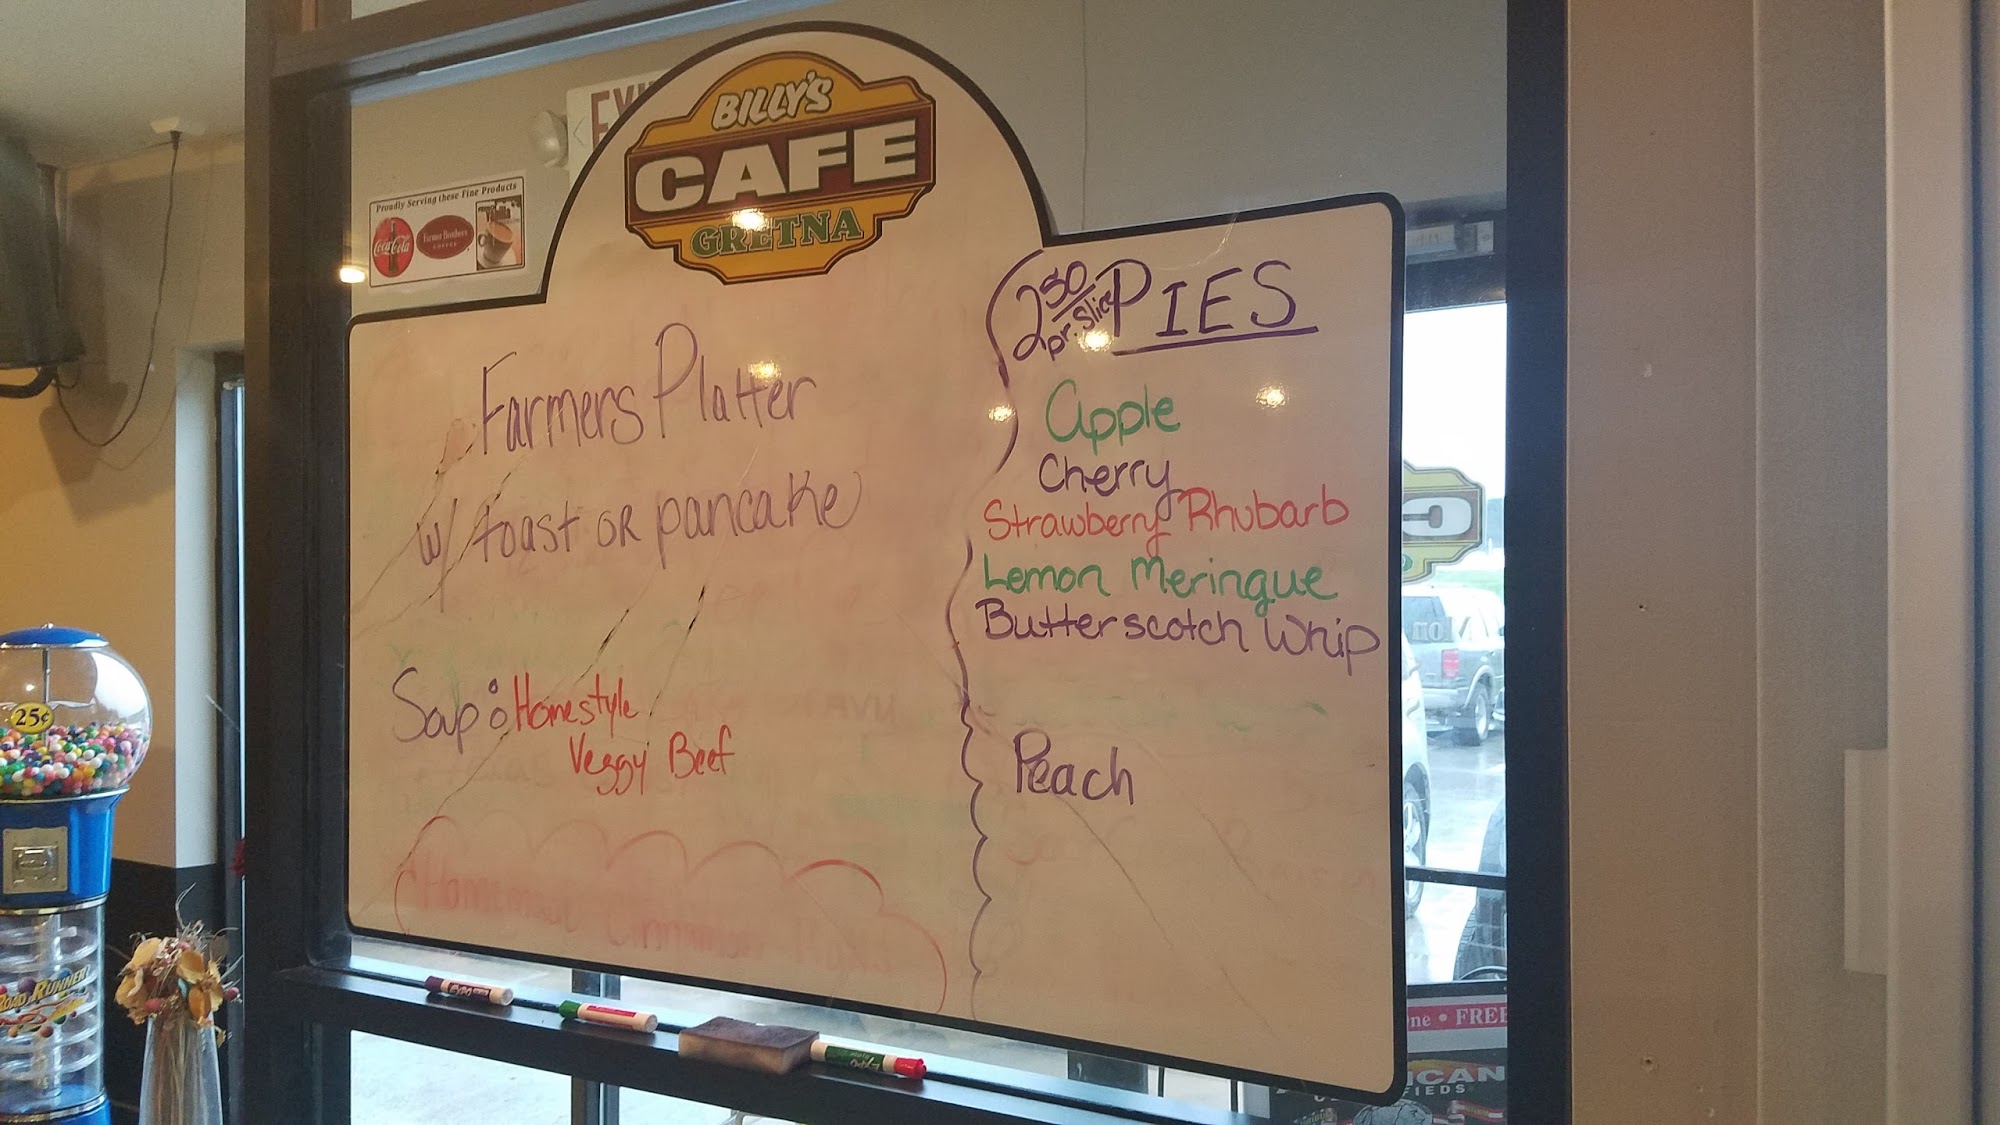 BILLY'S
CAFE
GRETNA
EXI
Proudly Serving these Fine Products
Coca-Cola
Farmer Brothers
COFFEE
Farmers Platter
w/ toast or pancake
Soup: Homestyle
Veggy Beef
Homemade Cinnamon
2 50/
pr. slice
PIES
apple
Cherry
Strawberry Rhubarb
Lemon Meringue
Butterscotch Whip
Peach
25¢
ROAD RUNNER
EXPO
FREE
ICAN